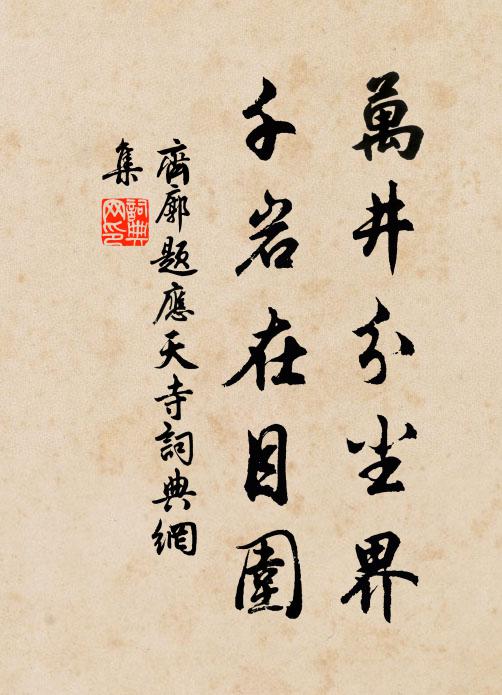 萬井分尘界
千岩在目圍
齊廓題應天寺詞典網
集
詞典
网印